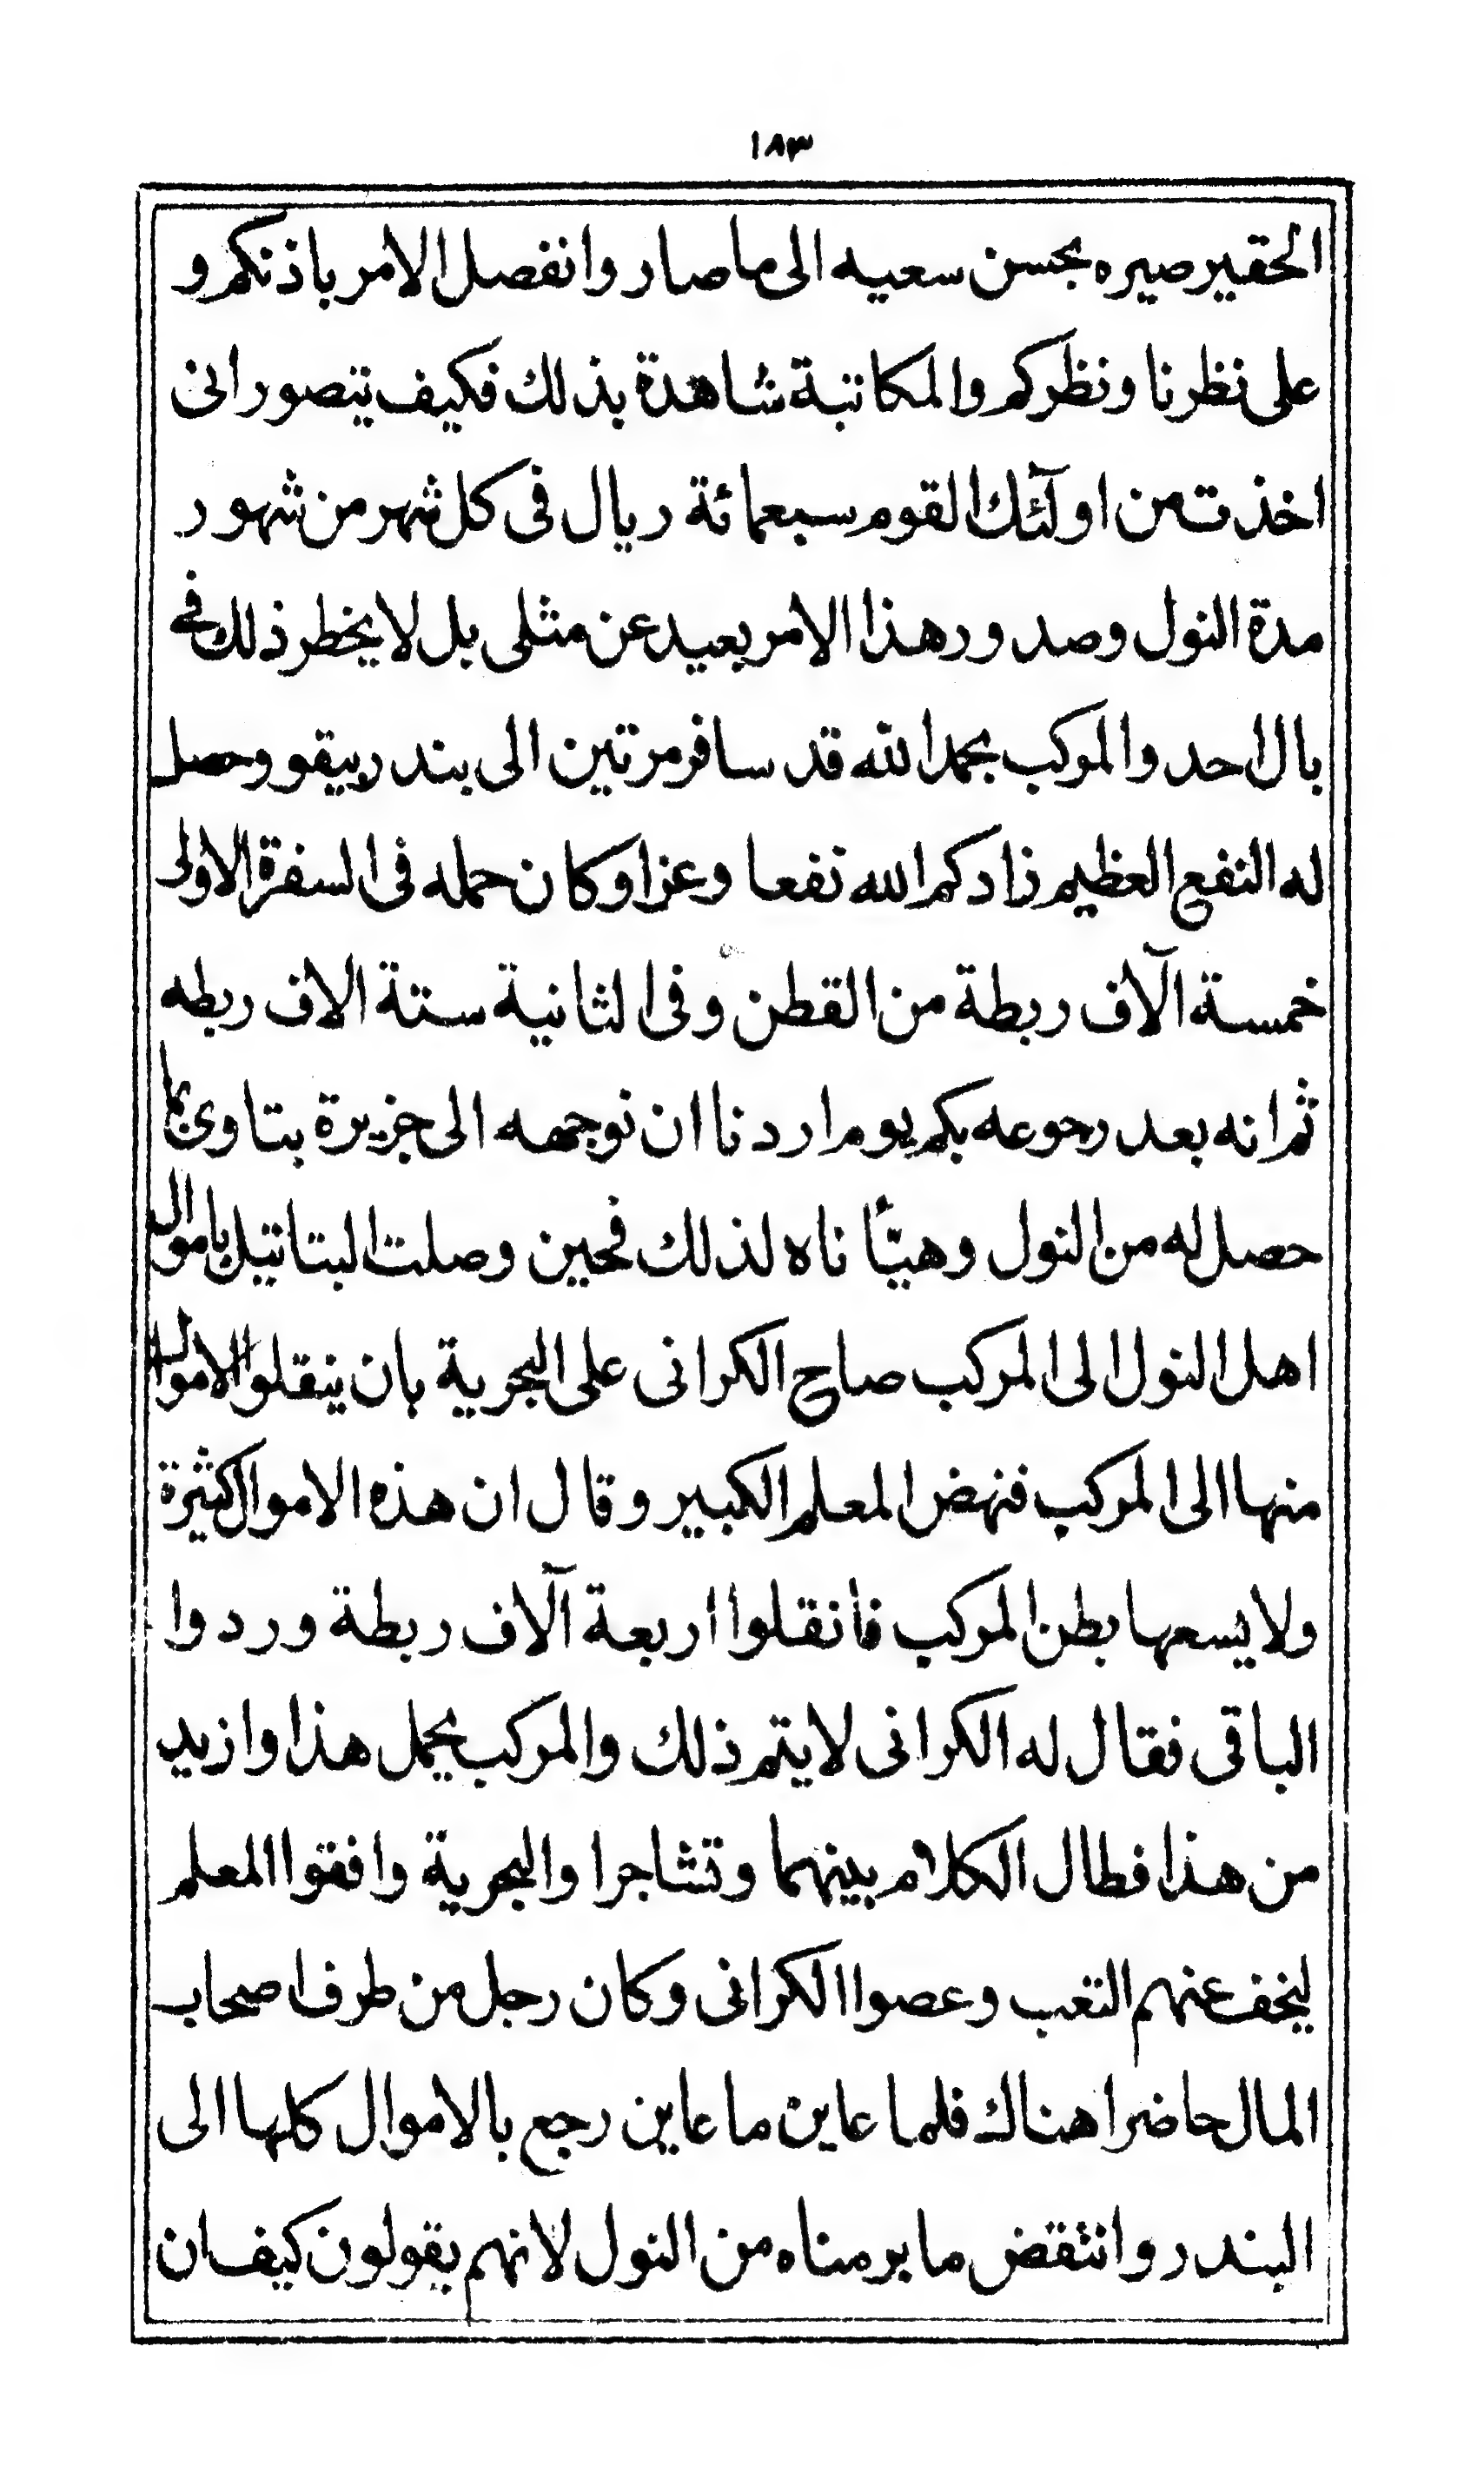 ١٨٣
الحقير صيره بحسن سعيه الى ما صار وانفصل الامر باذنكم و
على نظرنا ونظركم والمكاتبة شاهدة بذلك فكيف يتصور انى
اخذت من اولٓئك القوم سبعمائة ريال فى كل شهر من شهور
مدة النول وصدور هذا الامر بعيد عن مثلى بل لا يخطر ذلك فى
بال احد والمركب بحمد الله قد سافر مرتين الى بندر بيقو وحصل
له النفع العظيم زادكم الله نفعا وعزا وكان حمله فى السفرة الاولى
خمسة آلاف ربطة من القطن وفى الثانية ستة الاف ربطه
ثم انه بعد رجوعه بكم يوم اردنا ان نوجهه الى جزيرة بتاوى بما
حصل له من النول وهيّأناه لذلك فحين وصلت البتاتيل باموال
اهل النول الى المركب صاح الكرانى على البحرية بان ينقلوا الاموال
منها الى المركب فنهض المعلم الكبير وقال ان هذه الاموال كثيرة
ولا يسعها بطن المركب فانقلوا اربعة آلاف ربطة وردوا
الباقى فقال له الكرانى لا يتم ذلك والمركب يحمل هذا وازيد
من هذا فطال الكلام بينهما وتشاجرا والبحرية وافقوا المعلم
ليخف عنهم التعب وعصوا الكرانى وكان رجل من طرف اصحاب
المال حاضرا هناك فلما عاين ما عاين رجع بالاموال كلها الى
البندر وانتقض ما برمناه من النول لانهم يقولون كيف ان